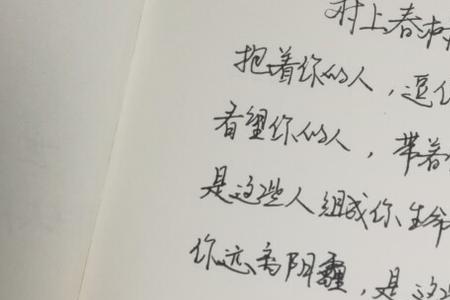 村上春树
抱着你的人，逗你
看望你的人，带着
是这些人组成你生命
你远离阴霾，是这